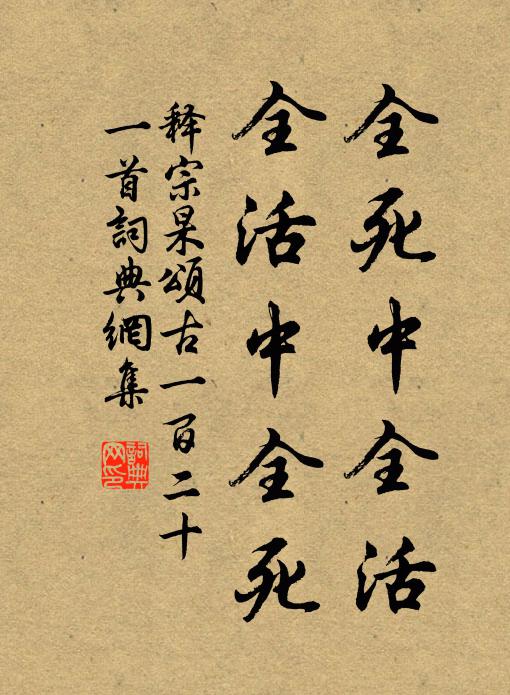 全死中全活
全活中全死
释宗杲頌古一百二十
一首詞典網集
詞典
网印